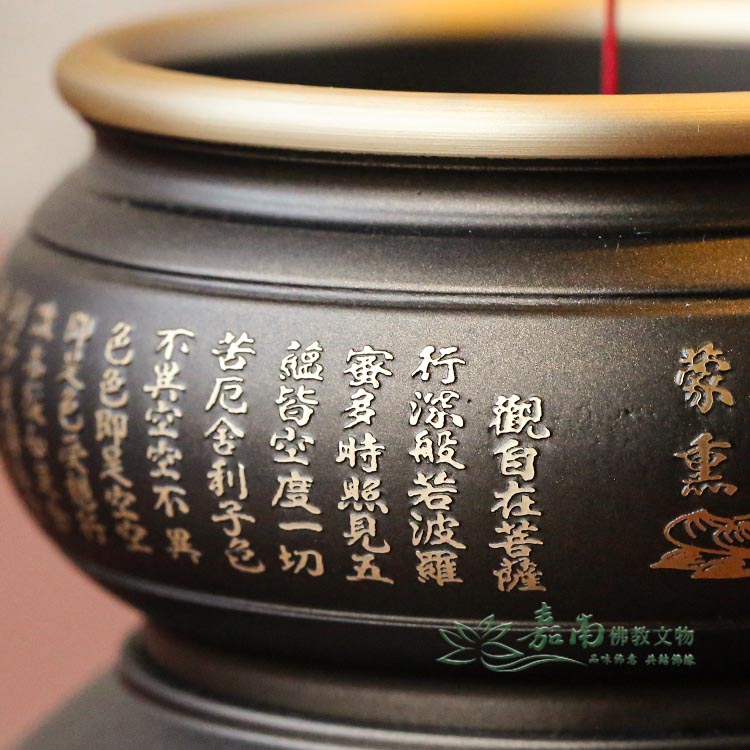 蒙熏
觀自在菩薩
行深般若波羅
蜜多時照見五
蘊皆空度一切
苦厄舍利子色
不異空空不異
色色即是空空
即是色受想行
嘉南佛教文物
品味佛意 共結佛緣